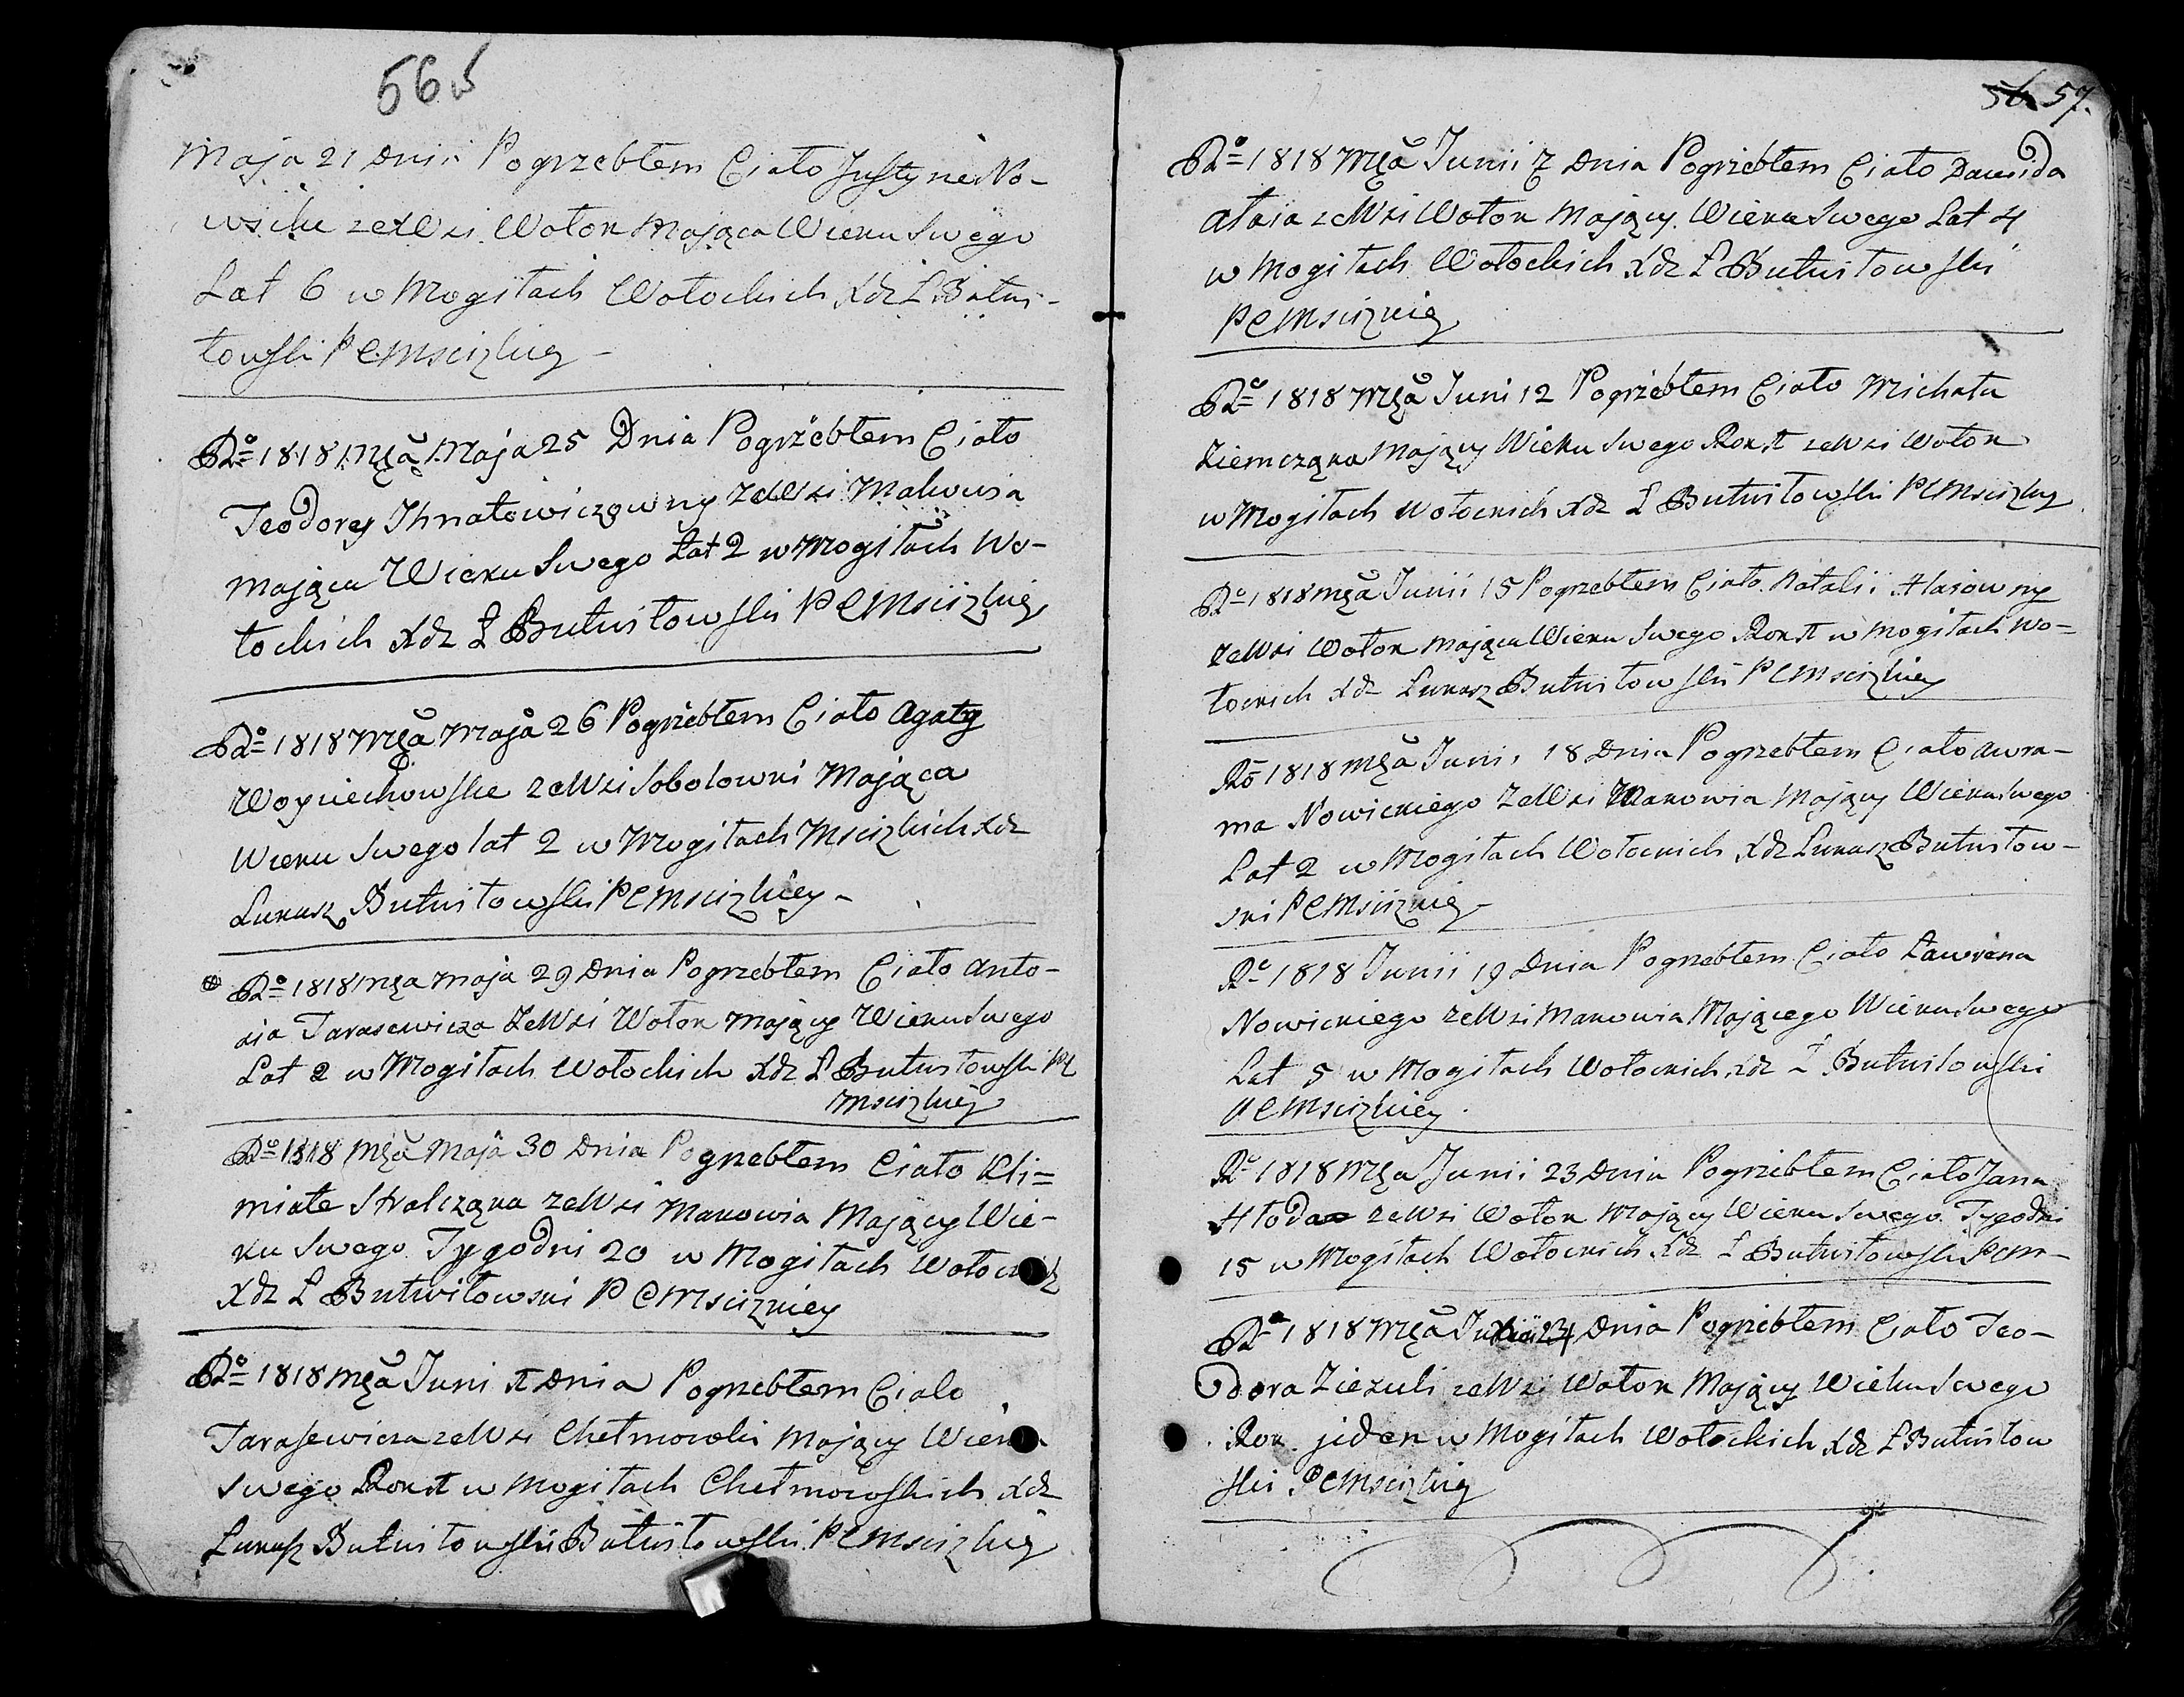 56
Maja 21 Dnia Pogrzebłem Ciało Justyni No-
wskie ze Wsi Wołok Mająca Wieku Swego
Lat 6 w Mogiłach Wołockich Xdz Ł Butwi-
łowski P C Mscizkiey
Ro 1818 Mca Maja 25 Dnia Pogrzebłem Ciało
Teodory Ihnatowiczowny ze Wsi Makowia
mająca Wieku Swego Lat 2 w Mogiłach Wo-
łockich Xdz Ł Butwiłowski P C Mscizkiey
Ro 1818 Mca Maja 26 Pogrzebłem Ciało Agaty
Woyciechowskie ze Wsi Sobolowki Mająca
Wieku Swego lat 2 w Mogiłach Mscizkich Xdz
Łukasz Butwiłowski P C Mscizkiey
Ro 1818 Mca Maja 29 Dnia Pogrzebłem Ciało Anto-
nia Tarasewicza ze Wsi Wołok Mający Wieku Swego
Lat 2 w Mogiłach Wołockich Xdz Ł Butwiłowski PC
Mscizkiey
Ro 1818 Mca Maja 30 Dnia Pogrzebłem Ciało Kli=
miate Stralcząka ze Wsi Makowia Mający Wie-
ku Swego Tygodni 20 w Mogiłach
Xdz Ł Butwiłowski P C Mscizkiey
Ro 1818 Mca Juni Dnia Pogrzebłem Ciało
Tarasewicza ze Wsi Chełmowki Mający Wieku
Swego Rok w Mogiłach Chełmowskich Xdz
Łukasz Butwiłowski Butwiłowski P C Mscizkiey
56 57.
Ro 1818 Mca Junii 7 Dnia Pogrzebłem Ciało Dawida
ze Wsi Wołok Mający Wieku Swego Lat 4
w Mogiłach Wołockich Xdz Ł Butwiłowski
P C Mscizkiey
Ro 1818 Mca Juni 12 Pogrzebłem Ciało Michała
Ziemcząka Mający Wieku Swego Rok ze Wsi Wołok
w Mogiłach Wołockich Xdz Ł Butwiłowski P C Mscizkiey
Ro 1818 Mca Junii 15 Pogrzebłem Ciało Natalii Hasowny
ze Wsi Wołok mająca Wieku Swego Rok w Mogiłach Wo-
łockich Xdz Łukasz Butwiłowski P C Mscizkiey
Ro 1818 Mca Juni 18 Dnia Pogrzebłem Ciało Awra-
ma Nowickiego ze Wsi Makowia Mający Wieku Swego
Lat 2 w Mogiłach Wołockich Xdz Łukasz Butwiłow-
ski P C Mscizkiey
Ro 1818 Junii 19 Dnia Pogrzebłem Ciało Ławrena
Nowickiego ze Wsi Makowia Mającego Wieku Swego
Lat 5 w Mogiłach Wołockich Xdz Ł Butwiłowski
P C Mscizkiey
Ro 1818 Mca Junii 23 Dnia Pogrzebłem Ciało Jana
Hłoda ze Wsi Wołok Mający Wieku Swego Tygodni
15 w Mogiłach Wołockich Xdz Ł Butwiłowski P C M-
Ro 1818 Mca 24 Dnia Pogrzebłem Ciało Teo-
dora Ziezuli ze Wsi Wołok Mający Wieku Swego
Rok jeden w Mogiłach Wołockich Xdz Ł Butwiłow
ski P C Mscizkiey